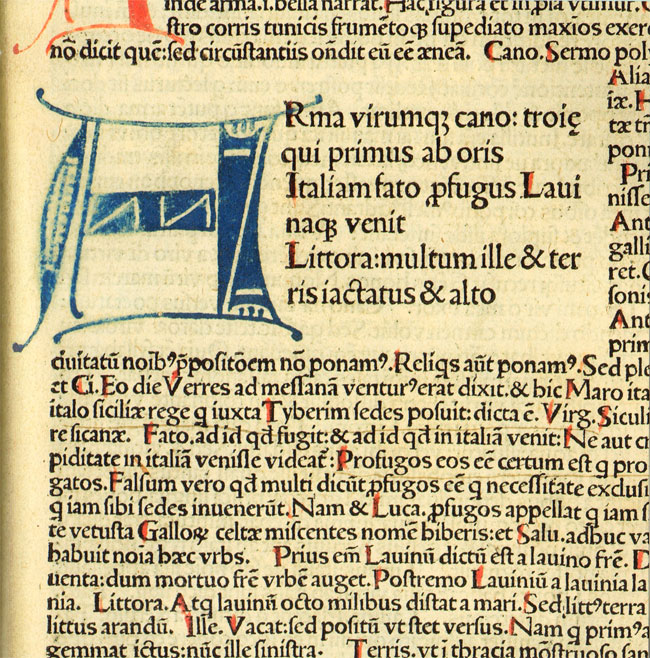 inde arma.i.bella narrat. Hac figura et in
stro corris tunicis frumētoqȝ supediato maxios exer
nō dicit quē:sed circūstantiis oñdit eū eē æneā. Cano.Sermo pol
ARma virumqȝ cano: troię
qui primus ab oris
Italiam fato ꝓfugus Laui
naqȝ venit
Littora:multum ille & ter
ris iactatus & alto
Alia
iæ. H
tæ tñ
pon
Pri
nisse
Ant
galli
ret. C
sonis
Ant
prim
ciuitatū noibꝰ p̄positōem nō ponamꝰ.Reliqs aūt ponamꝰ.Sed ple
et Ci. Eo die Verres ad messanā venturꝰerat dixit.& hic Maro ita
italo siciliæ rege q iuxta Tyberim sedes posuit: dicta ē. Virg. Siculi
re sicanæ. Fato.ad id qd fugit:& ad id qd in italiā venit: Ne aut cr
piditate in italiā venisse videat᷑: Profugos eos eē certum est q pro
gatos. Falsum vero qd multi dicūt ꝓfugos eē q necessitate exclusi
q iam sibi sedes inuenerūt. Nam & Luca. ꝓfugos appellat q iam s
te vetusta Galloꝝ celtæ miscentes nomē hiberis:et Salu.adhuc va
habuit noīa hæc vrbs. Prius em̄ Lauinū dictū est a lauino frē. D
uenta:dum mortuo frē vrbē auget. Postremo Lauiniū a lauinia la
nia. Littora. Atq lauinū octo milibus distat a mari. Sed littꝰterra
littus arandū. Ille. Vacat:sed positū vt stet versus. Nam q primꝰa
gemmat ictus:nūc ille sinistra. Terris. vt i thracia mōstruoso san